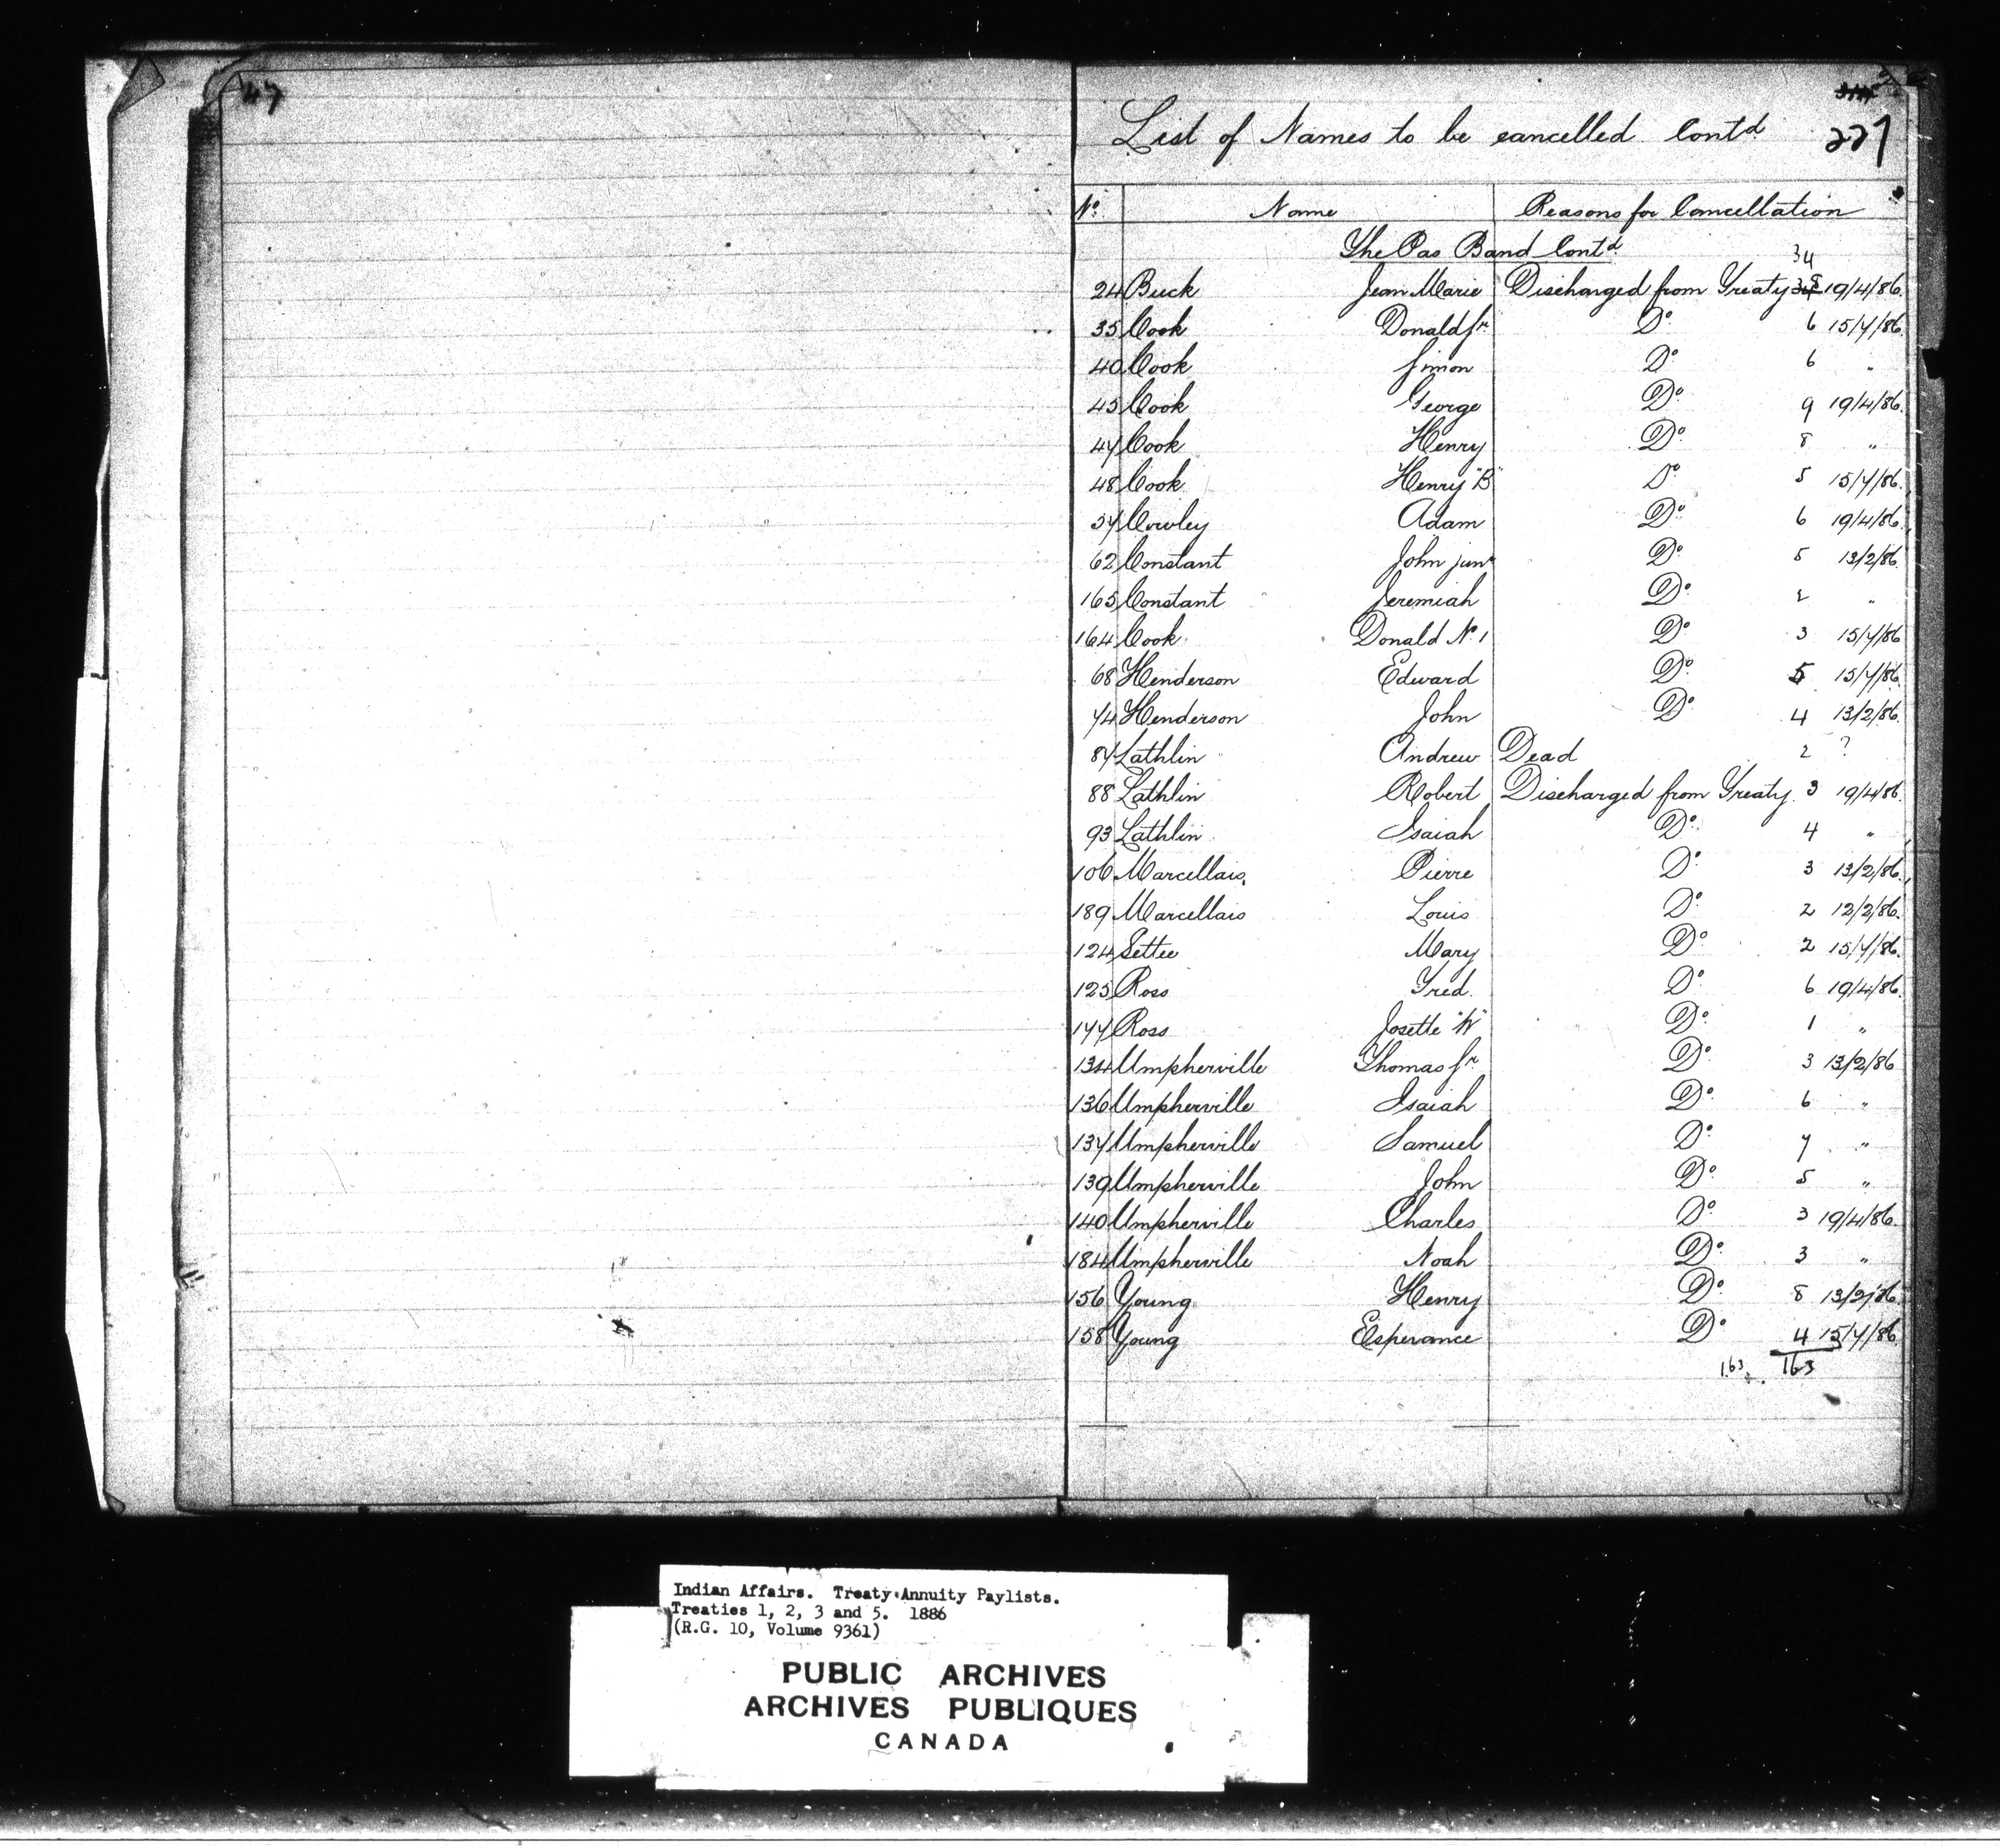 47
List of Names to be cancelled Contd 227
No. Name Reasons for Cancellation
The Pas Band Contd 34
24 Buck Jean Marie Discharged from Treaty 8 19/4/86.
35 Cook Donald Jr. Do. 6 15/7/86.
40 Cook Simon Do 6 "
45 Cook George Do. 9 19/4/86.
47 Cook Henry Do. 8 "
48 Cook Henry "B" Do 5 15/7/86.
57 Cowley Adam Do. 6 19/4/86.
62 Constant John junr Do. 5 13/2/86.
165 Constant Jeremiah Do. 2 "
164 Cook Donald No. 1 Do. 3 15/7/86
68 Henderson Edward Do. 5 15/7/86.
74 Henderson John Do. 4 13/2/86.
87 Lathlin Andrew Dead 2 ?
88 Lathlin Robert Discharged from Treaty. 3 19/4/86.
93 Lathlin Isaiah Do. 4 "
106 Marcellais Pierre Do. 3 13/2/86.
189 Marcellais Louis Do. 2 12/2/86.
124 Settee Mary Do. 2 15/7/86.
125 Ross Fred. Do. 6 19/4/86.
177 Ross Josette "W" Do. 1 "
134 Umpherville Thomas Jr. Do. 3 13/2/86
136 Umpherville Isaiah Do. 6 "
137 Umpherville Samuel Do. 7 "
139 Umpherville John Do. 5 "
140 Umpherville Charles Do. 3 19/4/86.
184 Umpherville Noah Do. 3 "
156 Young Henry Do. 8 13/2/86.
158 Young Esperance Do. 4 15/7/86.
163 163
Indian Affairs. Treaty Annuity Paylists.
Treaties 1, 2, 3 and 5. 1886
(R.G. 10, Volume 9361)
PUBLIC ARCHIVES
ARCHIVES PUBLIQUES
CANADA